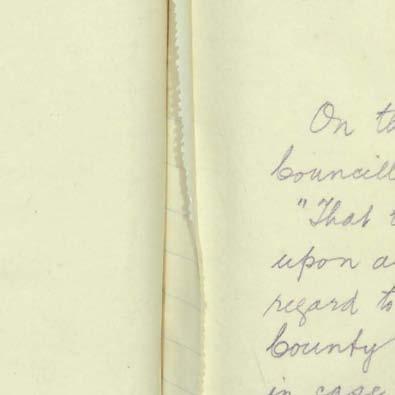 On
Councill
"That
upon a
regard to
County
in case